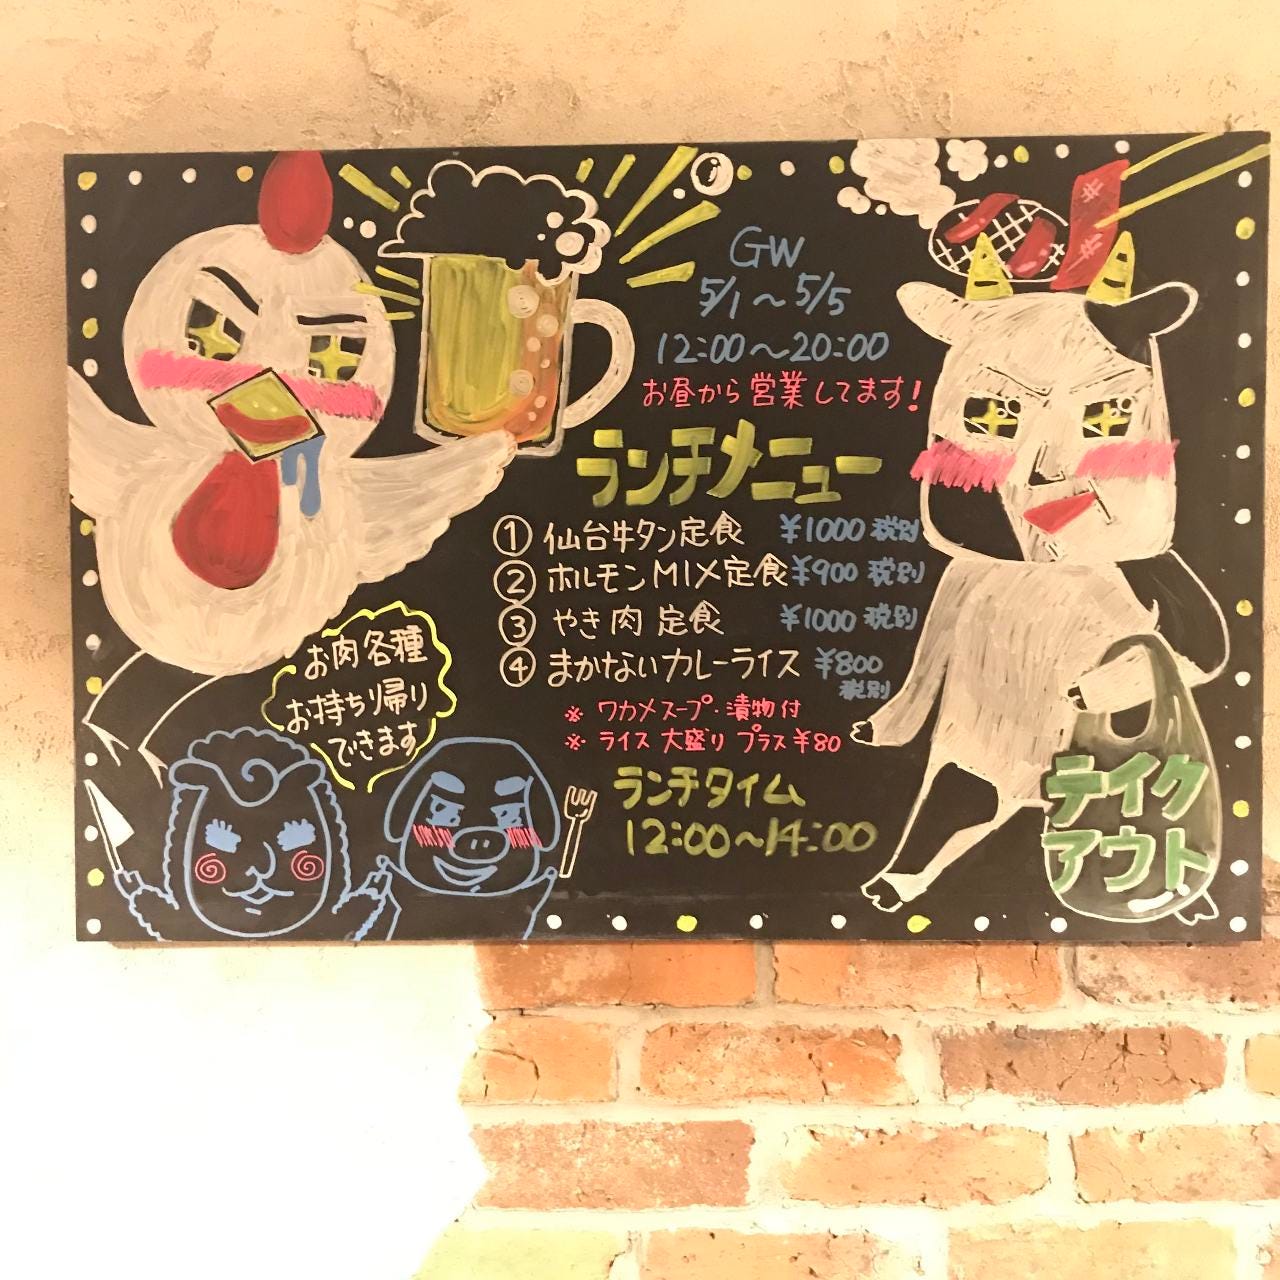 GW
5/1～5/5
12:00～20:00
お昼から営業してます!
ランチメニュー
① 仙台牛タン定食 ¥1000 税別
② ホルモンMIX定食 ¥900 税別
③ やき肉 定食 ¥1000 税別
④ まかないカレーライス ¥800
税別
※ ワカメスープ・漬物付
※ ライス 大盛り プラス ¥80
ランチタイム
12:00～14:00
お肉各種
お持ち帰り
できます
テイク
アウト